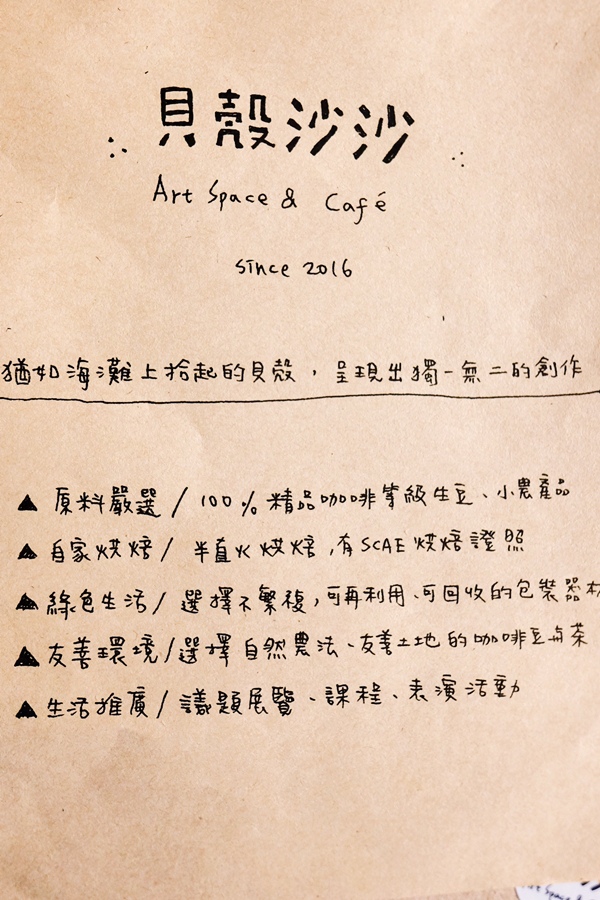 貝殼沙沙
Art Space & Café
since 2016
猶如海灘上拾起的貝殼，呈現出獨一無二的創作
▲ 原料嚴選/100%精品咖啡等級生豆、小農產品
▲ 自家烘焙/半直火烘焙,有SCAE烘焙證照
▲ 綠色生活/選擇不繁複,可再利用、可回收的包裝器材
▲ 友善環境/選擇自然農法、友善土地的咖啡豆與茶
▲ 生活推廣/議題展覽、課程、表演活動